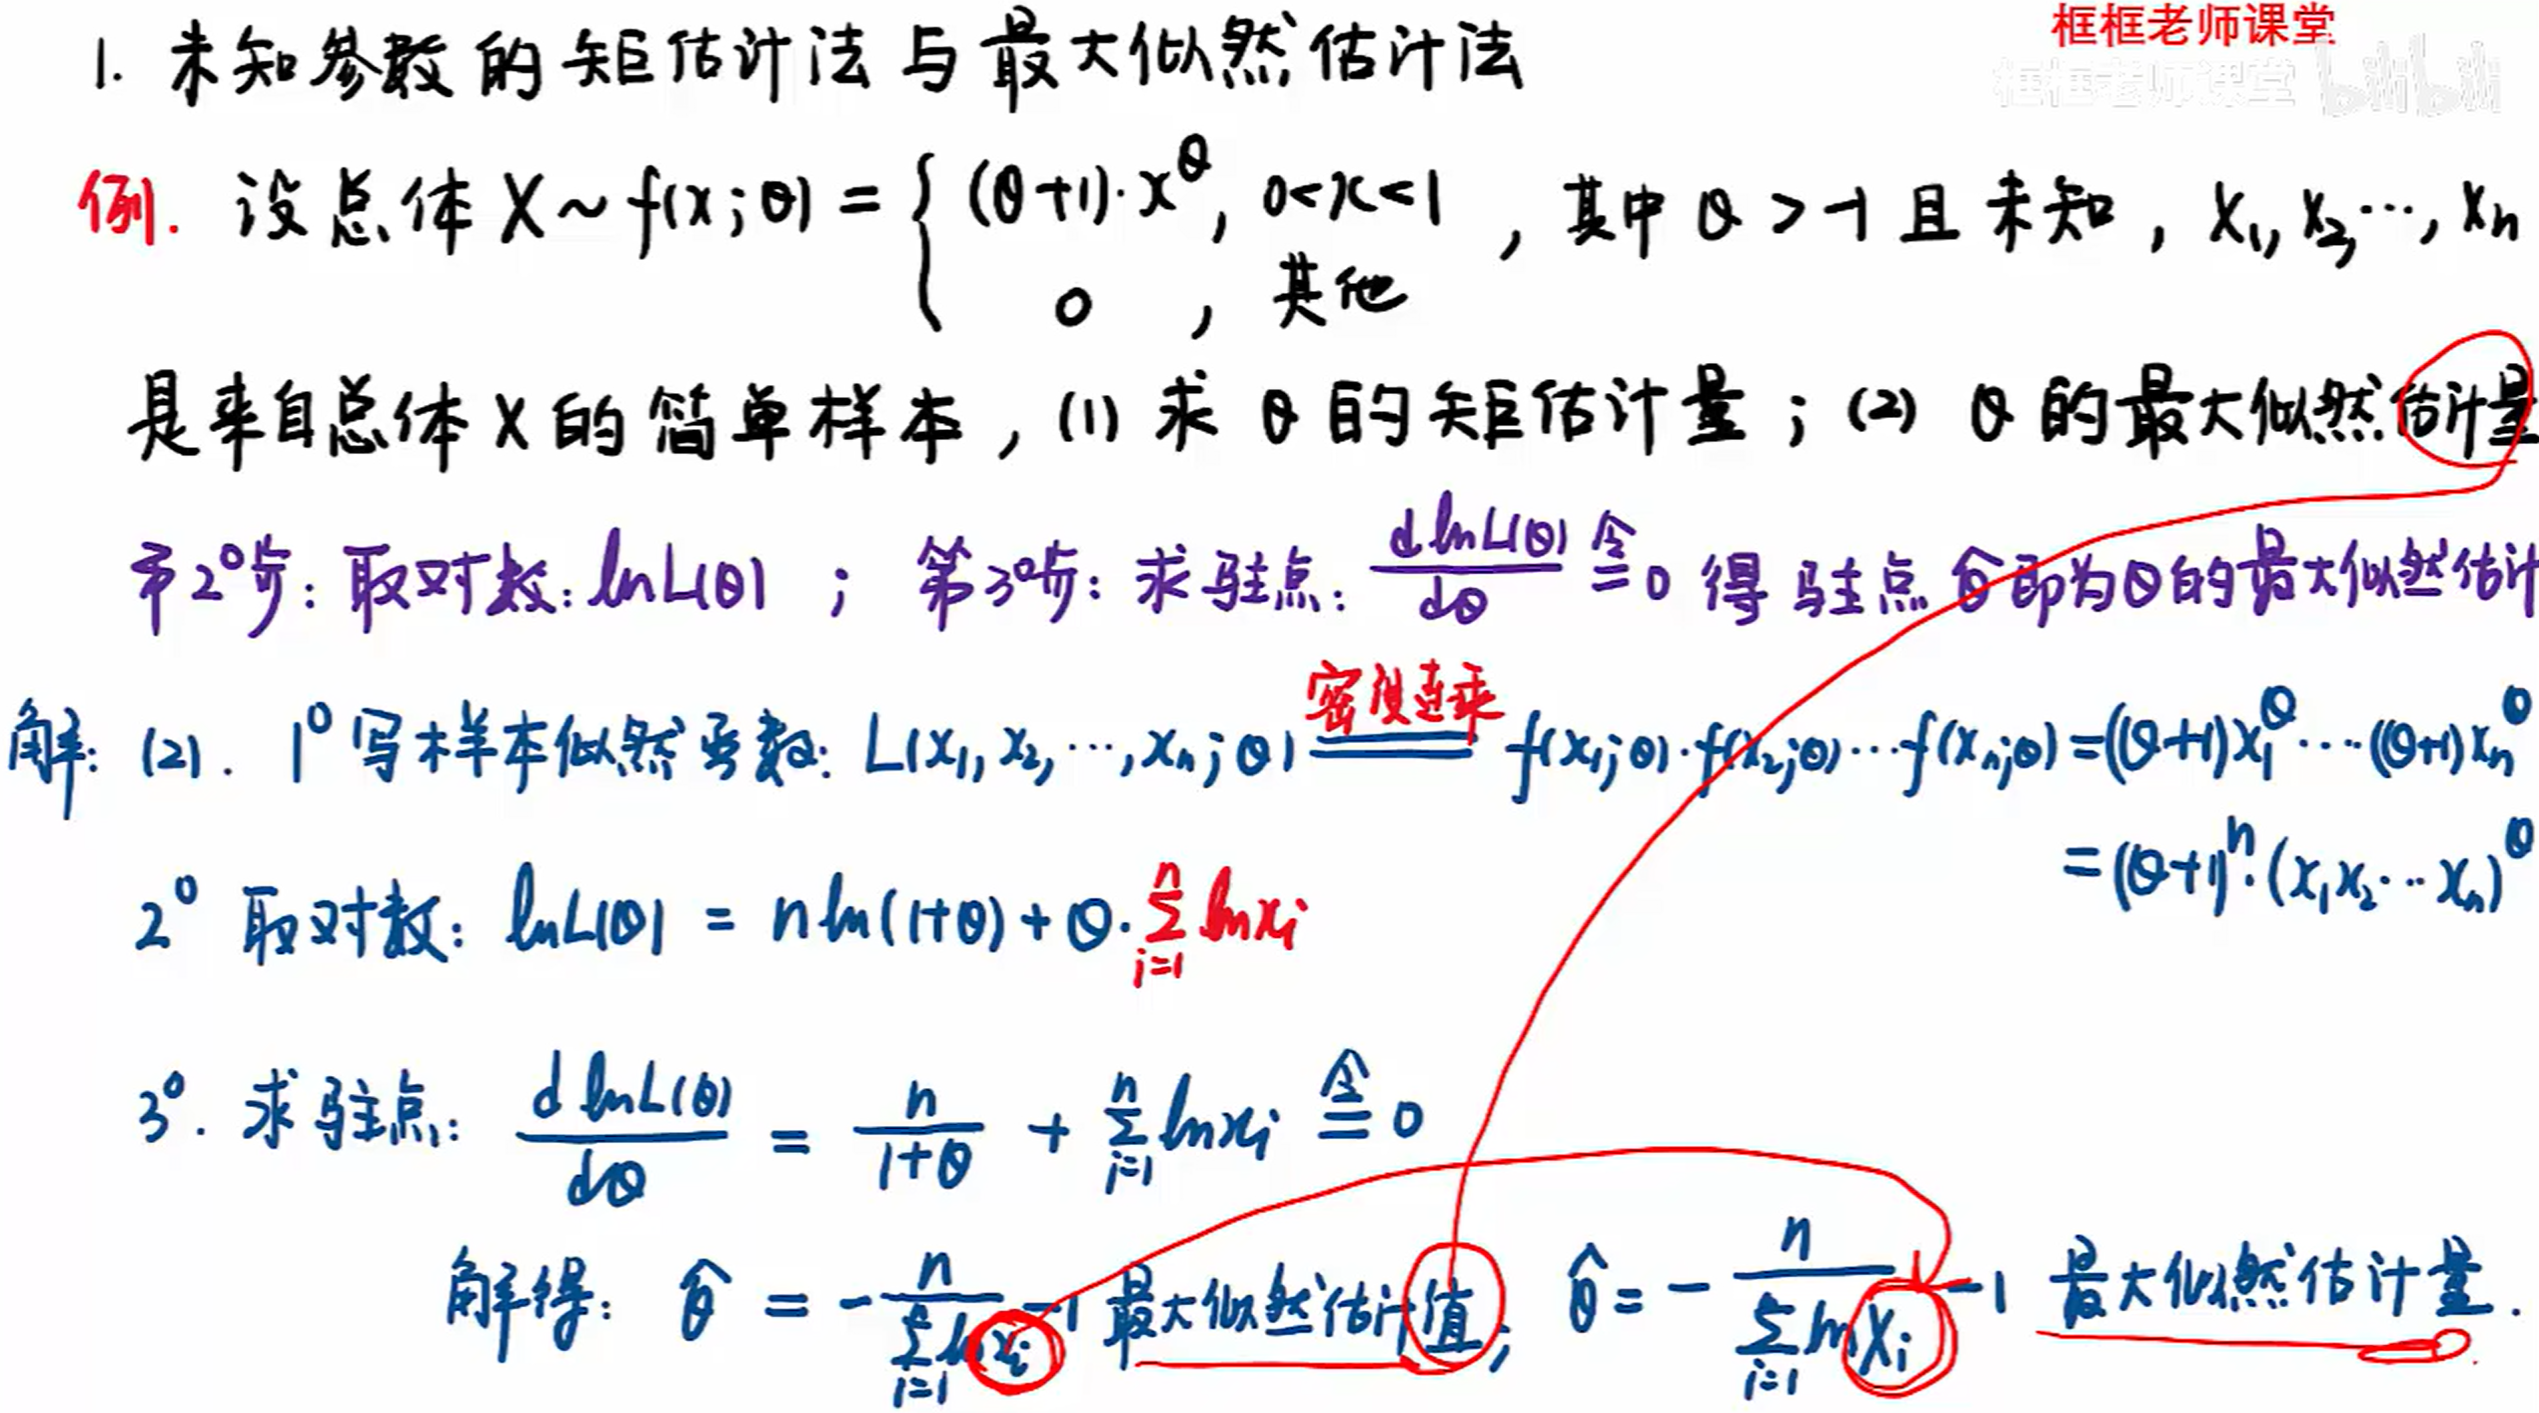 框框老师课堂
框框老师课堂 bilibili
1. 未知参数的矩估计法与最大似然估计法
例. 设总体 X ~ f(x;θ) = { (θ+1)·x^θ, 0<x<1 , 其中 θ > -1 且未知, X₁, X₂, …, Xₙ
0 , 其他
是来自总体 X 的简单样本, (1) 求 θ 的矩估计量; (2) θ 的最大似然估计量
第2⁰步: 取对数: lnL(θ) ; 第3⁰步: 求驻点: dlnL(θ)/dθ ≙(令) 0 得驻点 θ̂ 即为θ的最大似然估计
解: (2). 1⁰ 写样本似然函数: L(x₁, x₂, …, xₙ; θ) =(密度连乘) f(x₁;θ)·f(x₂;θ)…f(xₙ;θ) = ((θ+1)x₁^θ …· ((θ+1)xₙ^θ
= (θ+1)ⁿ·(x₁x₂…xₙ)^θ
2⁰ 取对数: lnL(θ) = n ln(1+θ) + θ·∑ⁿᵢ₌₁ lnxᵢ
3⁰. 求驻点: dlnL(θ)/dθ = n/(1+θ) + ∑ⁿᵢ₌₁ lnxᵢ =(令) 0
解得: θ̂ = - n/(∑ⁿᵢ₌₁ ln xᵢ) -1 最大似然估计值; θ̂ = - n/(∑ⁿᵢ₌₁ ln Xᵢ) -1 最大似然估计量.